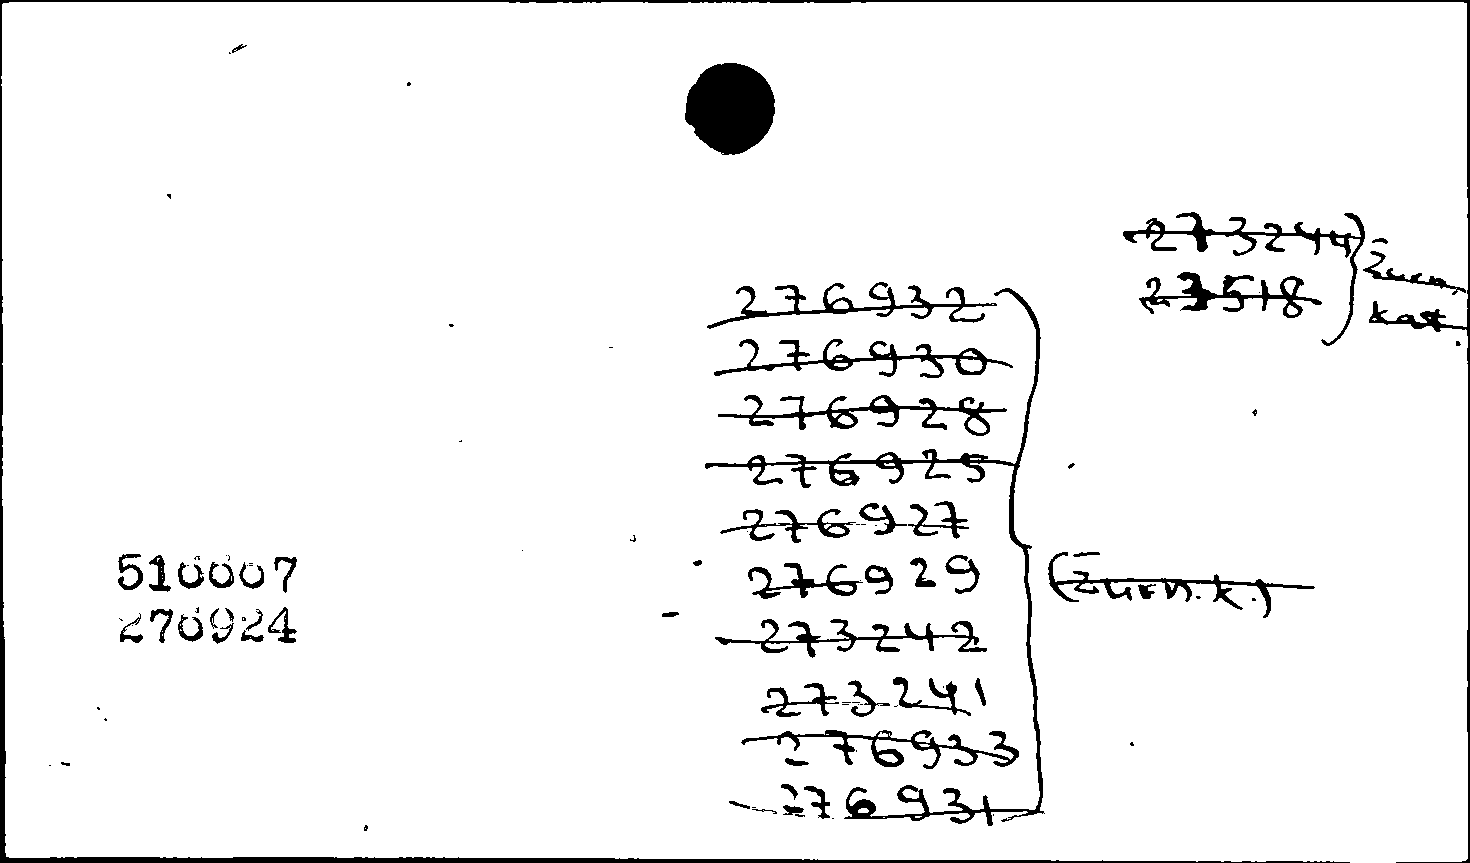 273244
23518
Žurn.
kat.
276932
276930
276928
276925
276927
276929
(Žurn. k.)
273242
273241
276933
276931
510007
276924